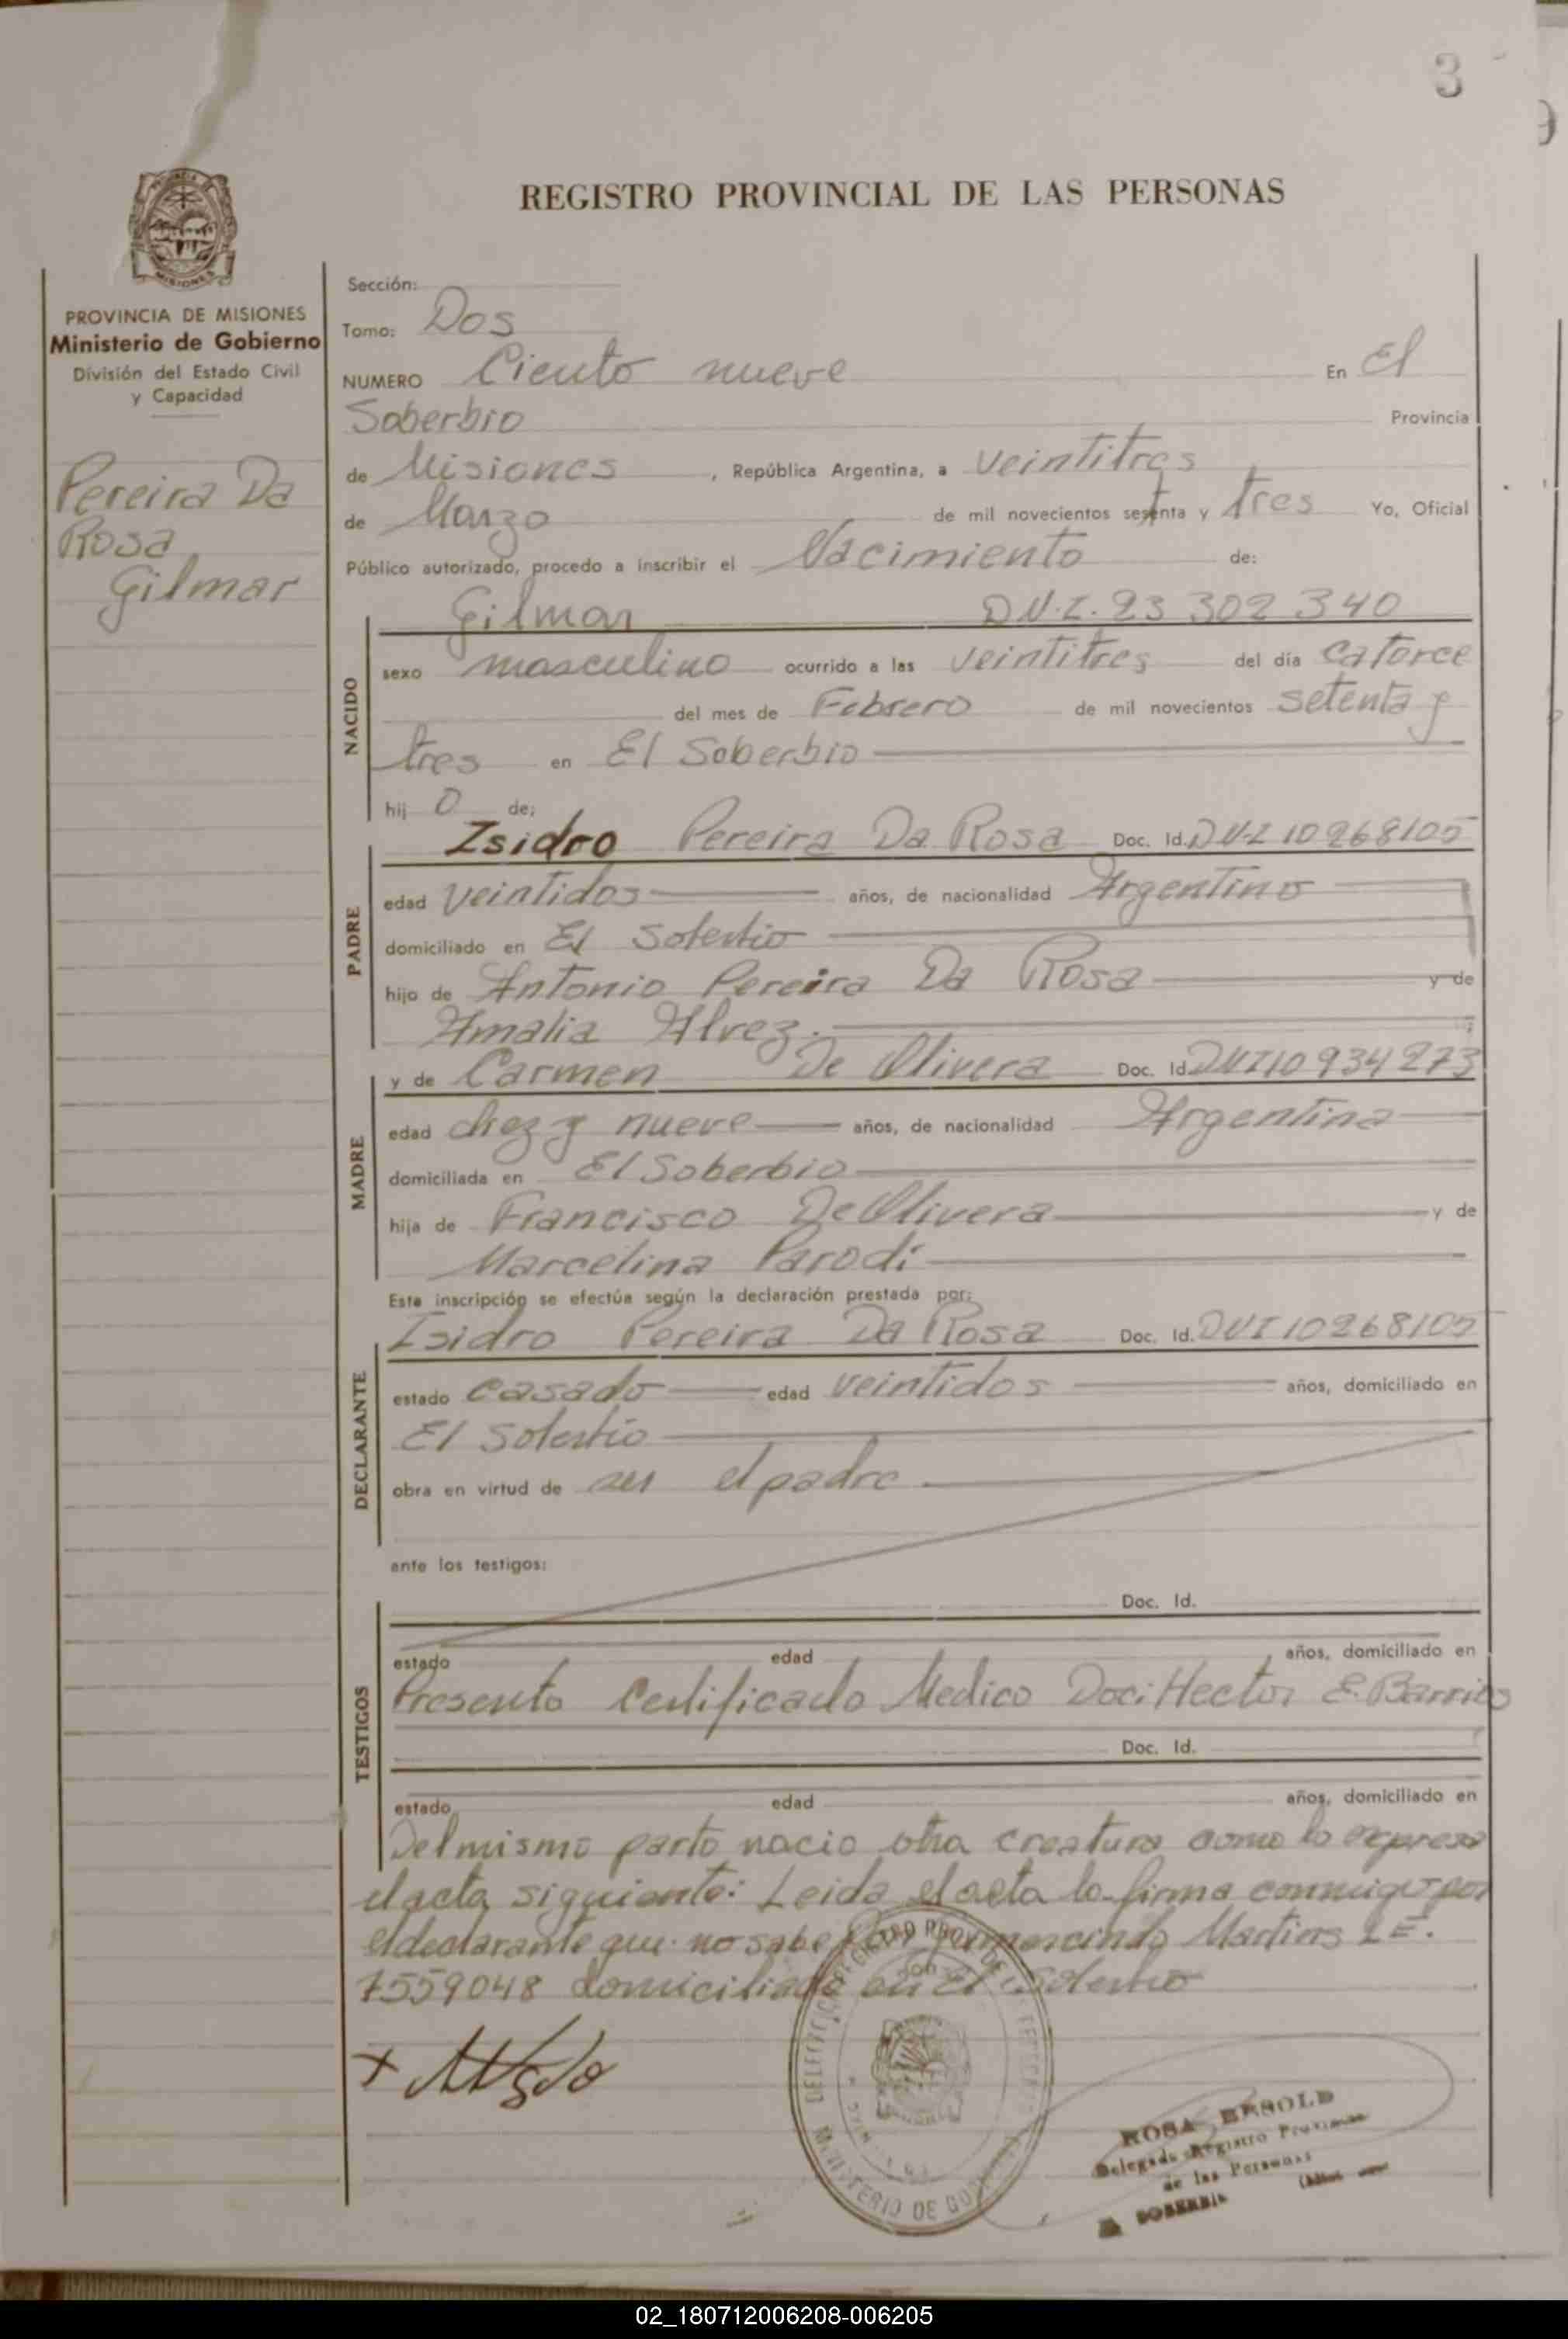 3
REGISTRO PROVINCIAL DE LAS PERSONAS
MISIONES
PROVINCIA DE MISIONES
Ministerio de Gobierno
División del Estado Civil
y Capacidad
Pereira Da
Rosa
Gilmar
Sección:
Tomo: Dos
NUMERO Ciento nueve En El
Soberbio Provincia
de Misiones , República Argentina, a veintitres
de Marzo de mil novecientos setenta y tres Yo, Oficial
Público autorizado, procedo a inscribir el Nacimiento de:
Gilmar D.N.I. 23 302 340
NACIDO
sexo masculino ocurrido a las veintitres del día catorce
del mes de Febrero de mil novecientos setenta y
tres en El Soberbio
hij o de:
Isidro Pereira Da Rosa Doc. Id. D.N.I 10268105
PADRE
edad veintidos años, de nacionalidad Argentino
domiciliado en El Soberbio
hijo de Antonio Pereira Da Rosa y de
Amalia Alvez.
y de Carmen De Olivera Doc. Id. DNI 10934273
MADRE
edad diez y nueve años, de nacionalidad Argentina
domiciliada en El Soberbio
hija de Francisco De Olivera y de
Marcelina Parodi
Esta inscripción se efectúa según la declaración prestada por:
Isidro Pereira Da Rosa Doc. Id. DNI 10268105
DECLARANTE
estado casado edad veintidos años, domiciliado en
El Soberbio
obra en virtud de ser el padre
ante los testigos:
Doc. Id.
TESTIGOS
estado edad años, domiciliado en
Presento Certificado Medico Doc: Hector E. Barrios
Doc. Id.
estado edad años, domiciliado en
Del mismo parto nacio otra creatura como lo expresa
el acta siguiente: Leida el acta la firma conmigo por
el declarante que no sabe Martins L E.
7559048 domiciliado en El Soberbio
MINISTERIO DE GOBIERNO
ROSA BESOLD
Delegada Registro Provincial
de las Personas
EL SOBERBIO
02_180712006208-006205